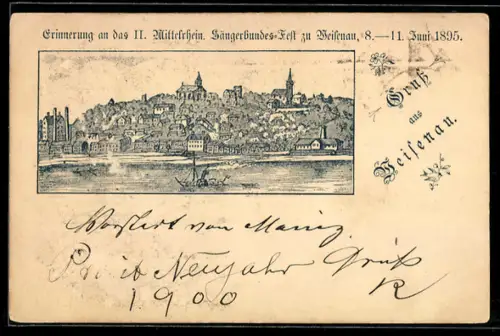 Erinnerung an das II. Mittelrhein. Sängerbundes-Fest zu Weisenau, 8.—11. Juni 1895.
Gruß
aus
Weisenau.
Vorstadt von Mainz
Prosit Neujahr Gruß
1900 R